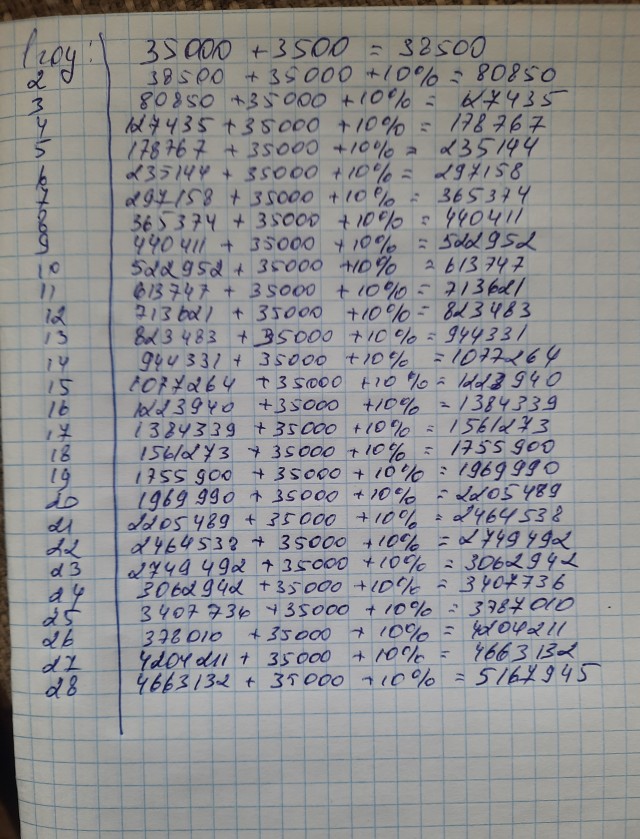 1 году: 35000 + 3500 = 38500
2 38500 + 35000 + 10% = 80850
3 80850 + 35000 + 10% = 127435
4 127435 + 35000 + 10% = 178767
5 178767 + 35000 + 10% = 235144
6 235144 + 35000 + 10% = 297158
7 297158 + 35000 + 10% = 365374
8 365374 + 35000 + 10% = 440411
9 440411 + 35000 + 10% = 522952
10 522952 + 35000 + 10% = 613747
11 613747 + 35000 + 10% = 713621
12 713621 + 35000 + 10% = 823483
13 823483 + 35000 + 10% = 944331
14 944331 + 35000 + 10% = 1077264
15 1077264 + 35000 + 10% = 1223940
16 1223940 + 35000 + 10% = 1384339
17 1384339 + 35000 + 10% = 1561273
18 1561273 + 35000 + 10% = 1755900
19 1755900 + 35000 + 10% = 1969990
20 1969990 + 35000 + 10% = 2205489
21 2205489 + 35000 + 10% = 2464538
22 2464538 + 35000 + 10% = 2749492
23 2749492 + 35000 + 10% = 3062942
24 3062942 + 35000 + 10% = 3407736
25 3407736 + 35000 + 10% = 3787010
26 378010 + 35000 + 10% = 4204211
27 4204211 + 35000 + 10% = 4663132
28 4663132 + 35000 + 10% = 5167945